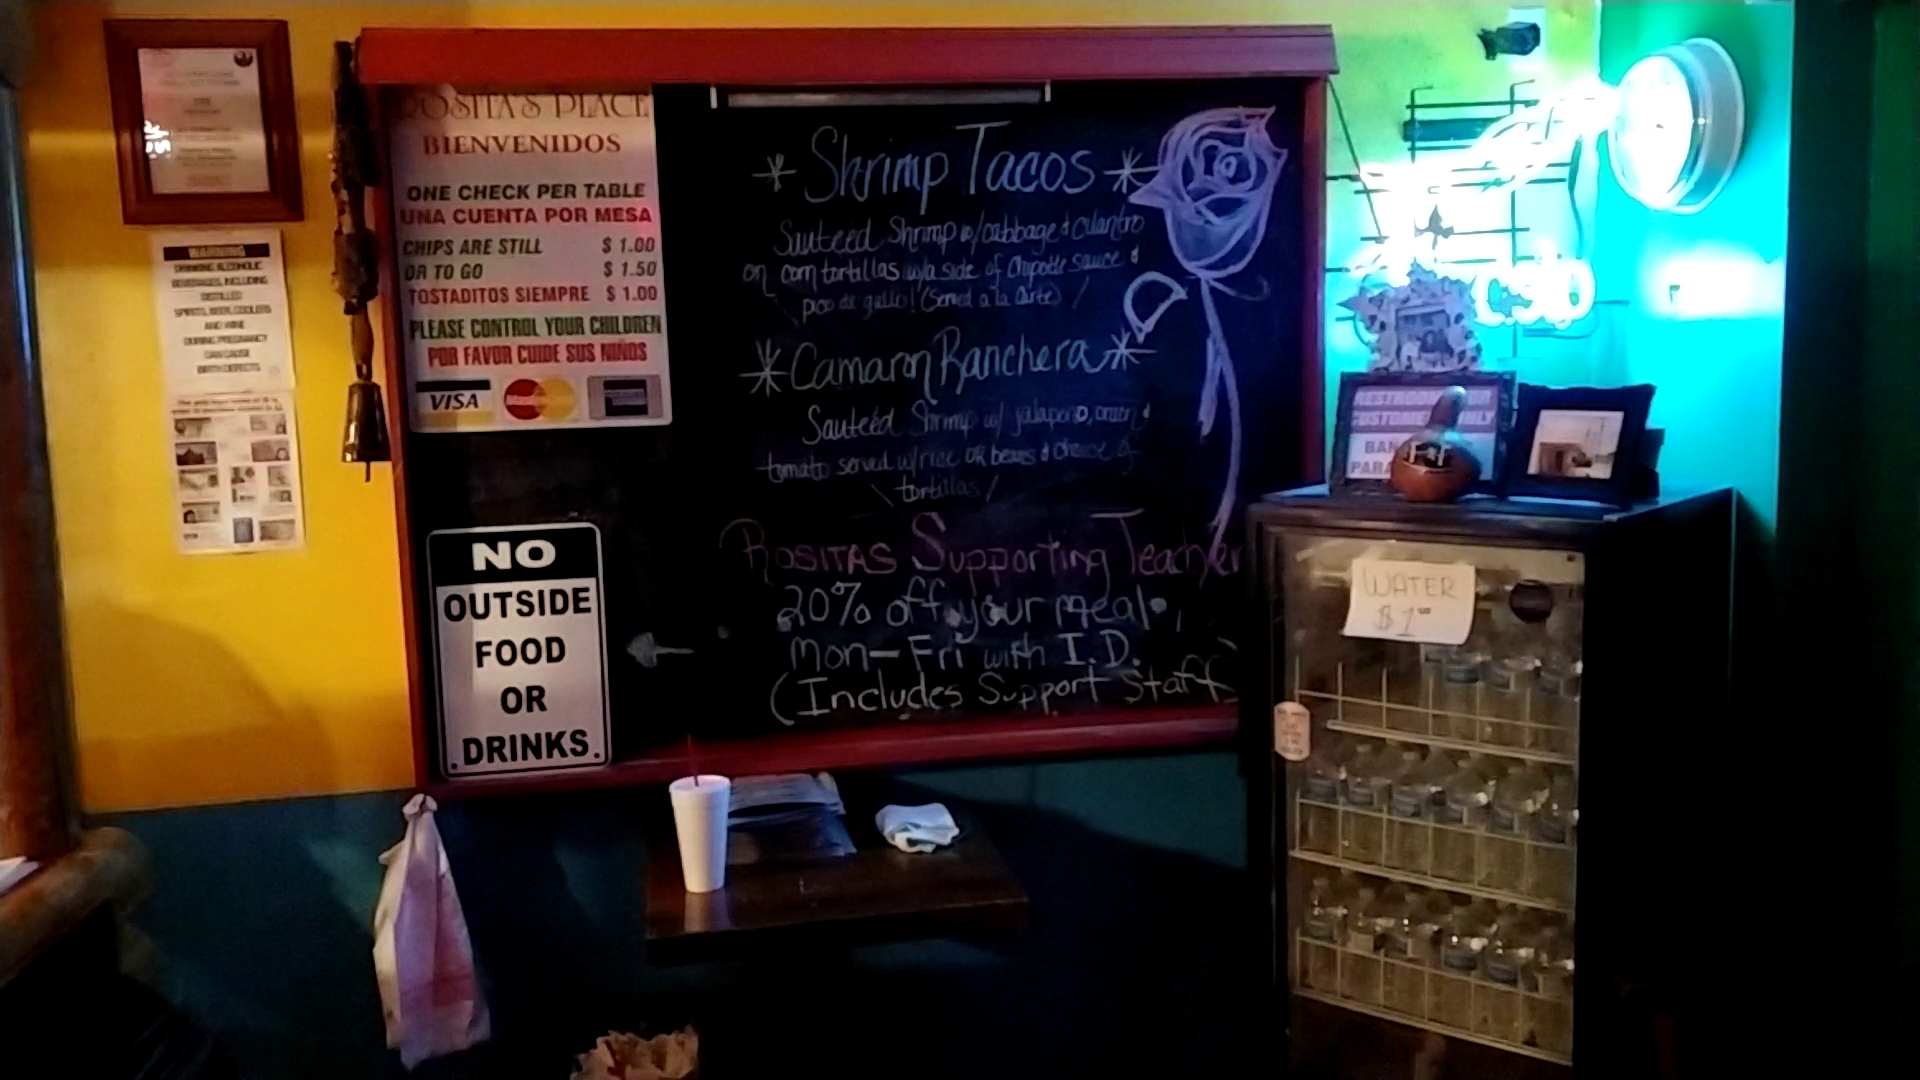 ROSITA'S PLACE
BIENVENIDOS
ONE CHECK PER TABLE
UNA CUENTA POR MESA
CHIPS ARE STILL $ 1.00
OR TO GO $ 1.50
TOSTADITOS SIEMPRE $ 1.00
PLEASE CONTROL YOUR CHILDREN
POR FAVOR CUIDE SUS NIÑOS
VISA
NO
OUTSIDE
FOOD
OR
DRINKS
Shrimp Tacos
Sauteed Shrimp w/cabbage & cilantro
on corn tortillas w/a side of Chipotle sauce &
pico de gallo! (Served a la Carte)
Camaron Ranchera
Sauteéd Shrimp w/ jalapeño, onion &
tomato served w/rice OR beans & choice of
tortillas
ROSITAS Supporting Teacher
20% off your meal
Mon-Fri with I.D.
(Includes Support Staff
WARNING
DRINKING ALCOHOLIC
BEVERAGES, INCLUDING
DISTILLED
SPIRITS, BEER, COOLERS
AND WINE
DURING PREGNANCY
CAN CAUSE
BIRTH DEFECTS
WATER
$1.00